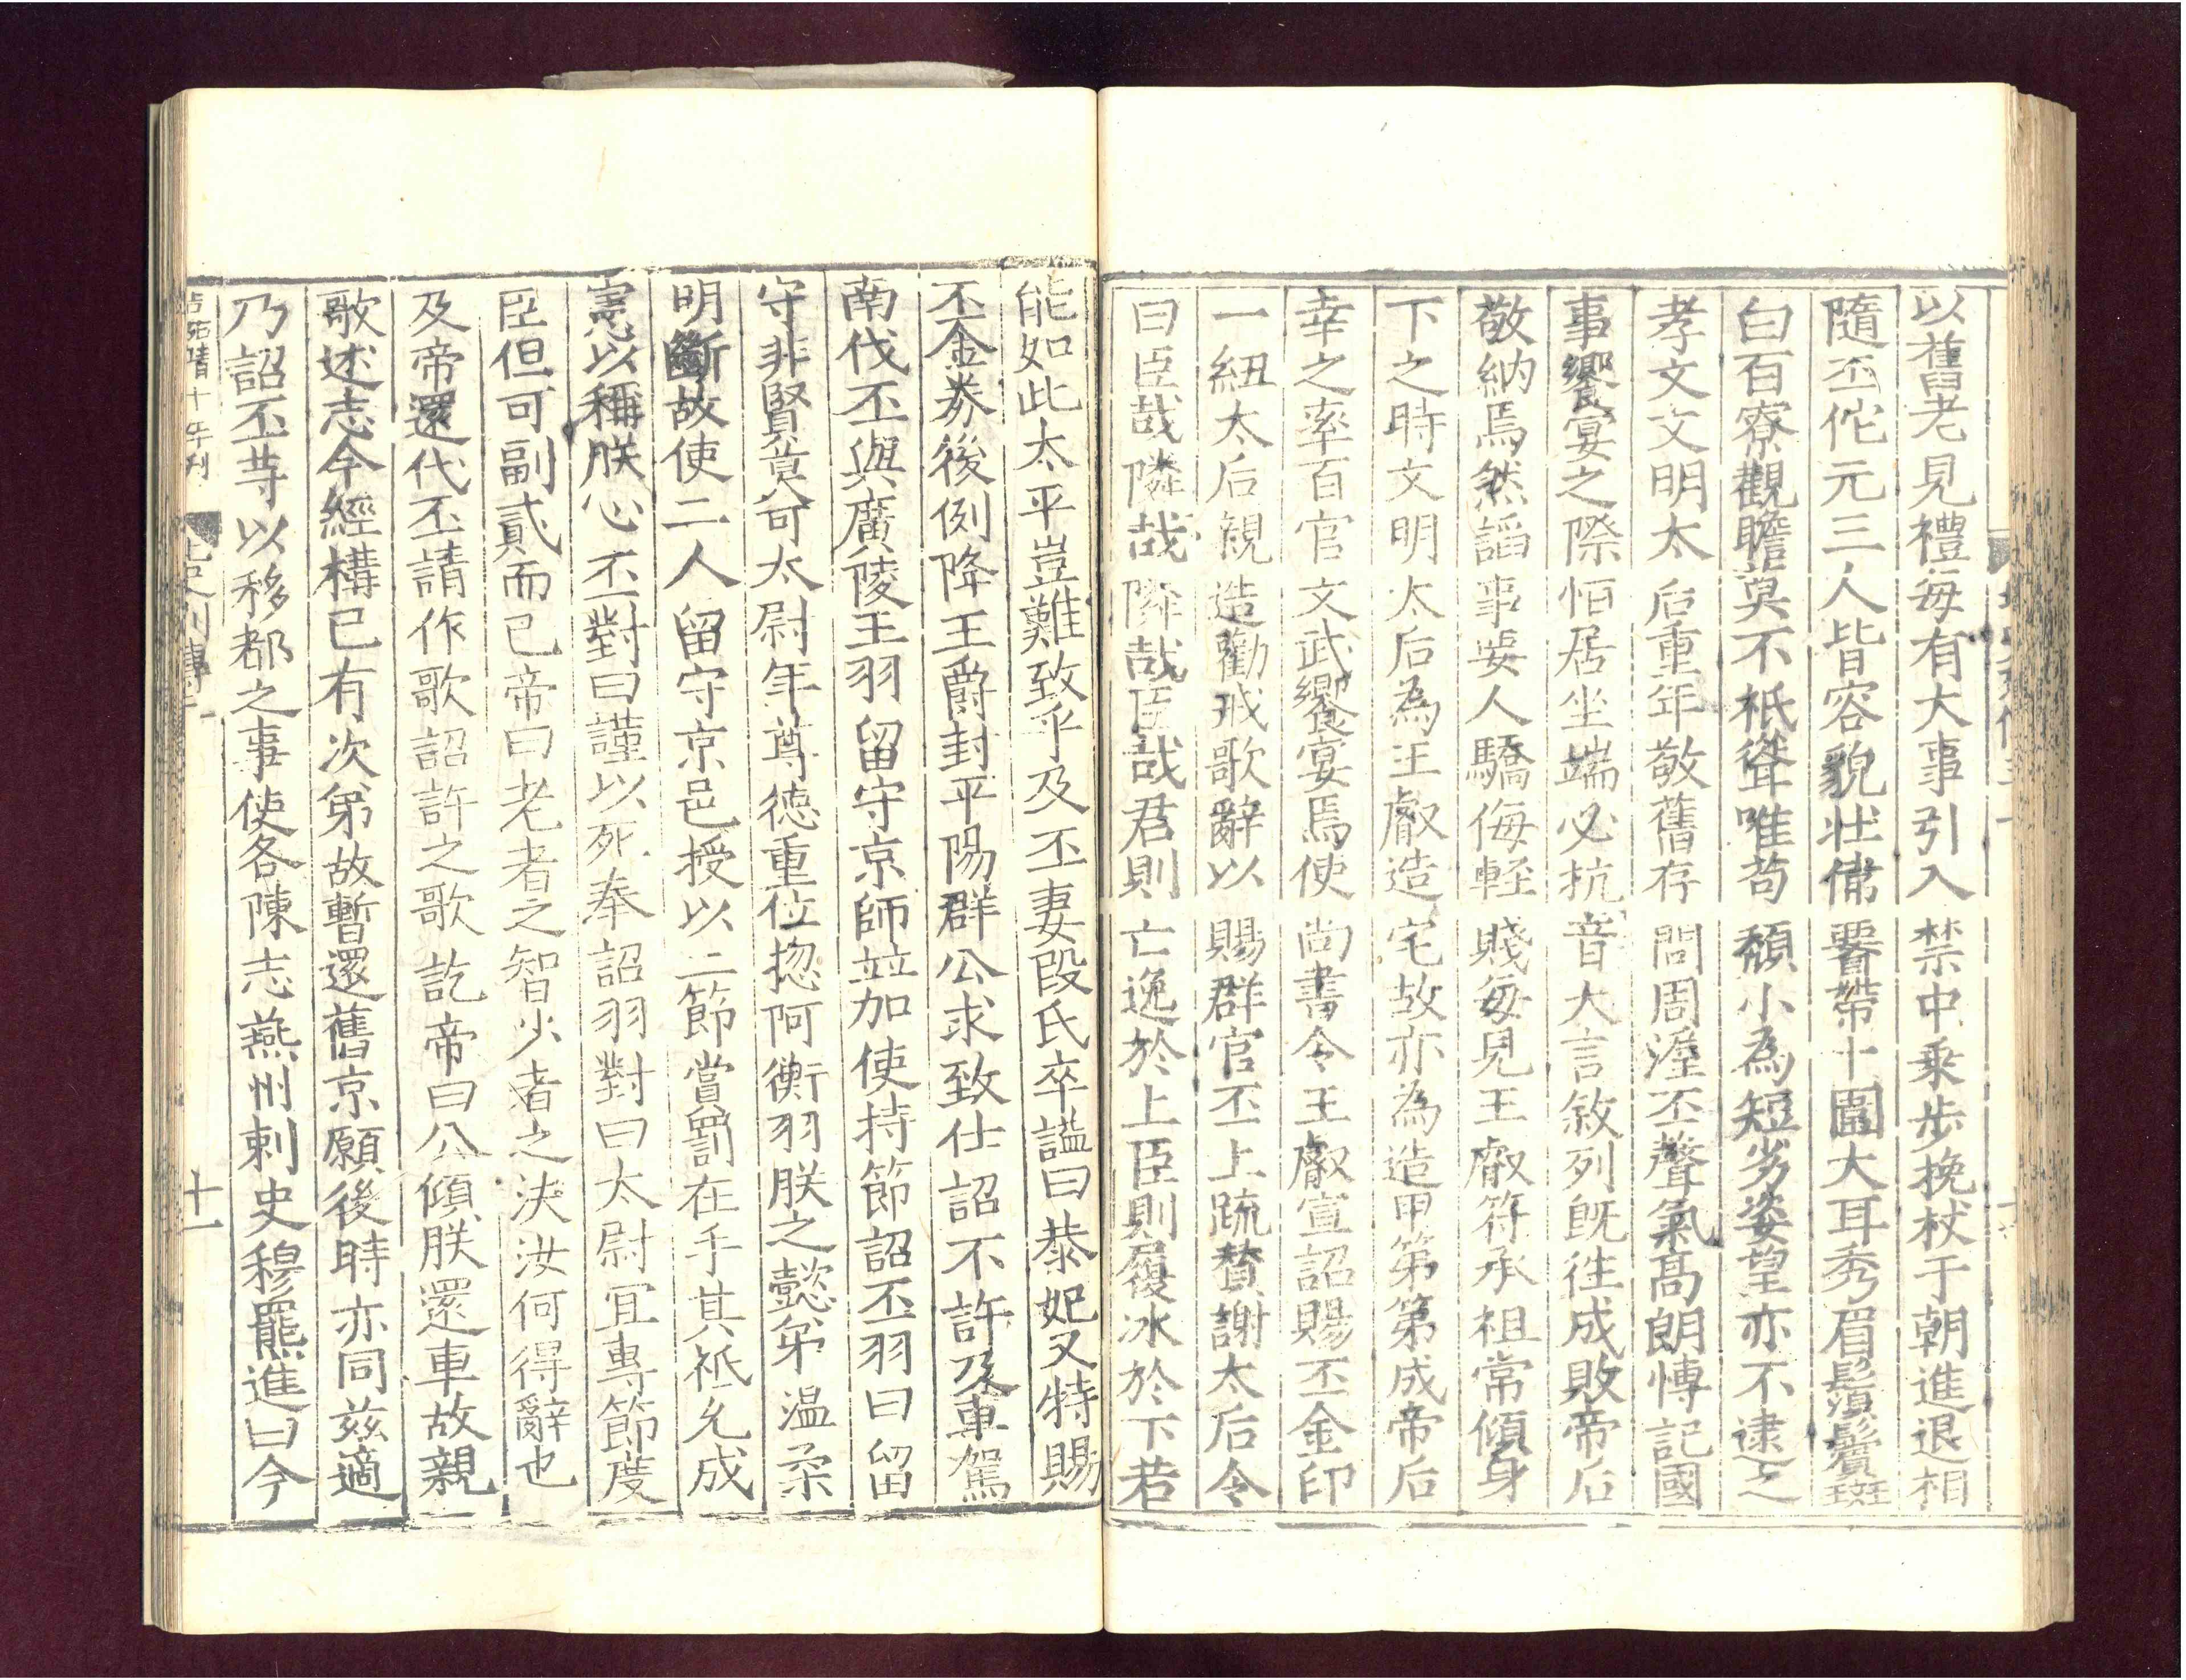 以舊老見禮每有大事引入禁中乗步挽杖于朝進退相
隨丕佗元三人皆容貌壯偉署帶十圍大耳秀眉鬚鬢斑
白百寮觀瞻莫不祇聳唯苟頹小為短劣姿望亦不逮之
孝文文明太后重年敬舊存問周渥丕聲氣高朗博記國
事饗宴之際恒居坐端必抗音大言敘列既往成敗帝后
敬納焉然謟事要人驕侮輕賤每見王叡符承祖常傾身
下之時文明太后為王叡造宅故亦為造甲第第成帝后
幸之率百官文武饗宴焉使尚書令王叡宣詔賜丕金印
一紐太后親造勸戒歌辭以賜群官丕上疏賛謝太后令
曰臣哉隣哉隣哉臣哉君則亡逸於上臣則履冰於下若
能如此太平豈難致乎及丕妻段氏卒謚曰恭妃又特賜
丕金券後例降王爵封平陽群公求致仕詔不許及車駕
南伐丕與廣陵王羽留守京師竝加使持節詔丕羽曰留
守非賢莫可太尉年尊德重位揔阿衡羽朕之懿弟温柔
明斷故使二人留守京邑授以二節賞罰在手其祇允成
憲以稱朕心丕對曰謹以死奉詔羽對曰太尉冝專節度
臣但可副貳而已帝曰老者之智少者之决汝何得辭也
及帝還代丕請作歌詔許之歌訖帝曰公傾朕還車故親
歌述志今經構已有次第故暫還舊京願後時亦同兹適
乃詔丕等以移都之事使各陳志燕州剌史穆羆進曰今
北史列傳三
十一